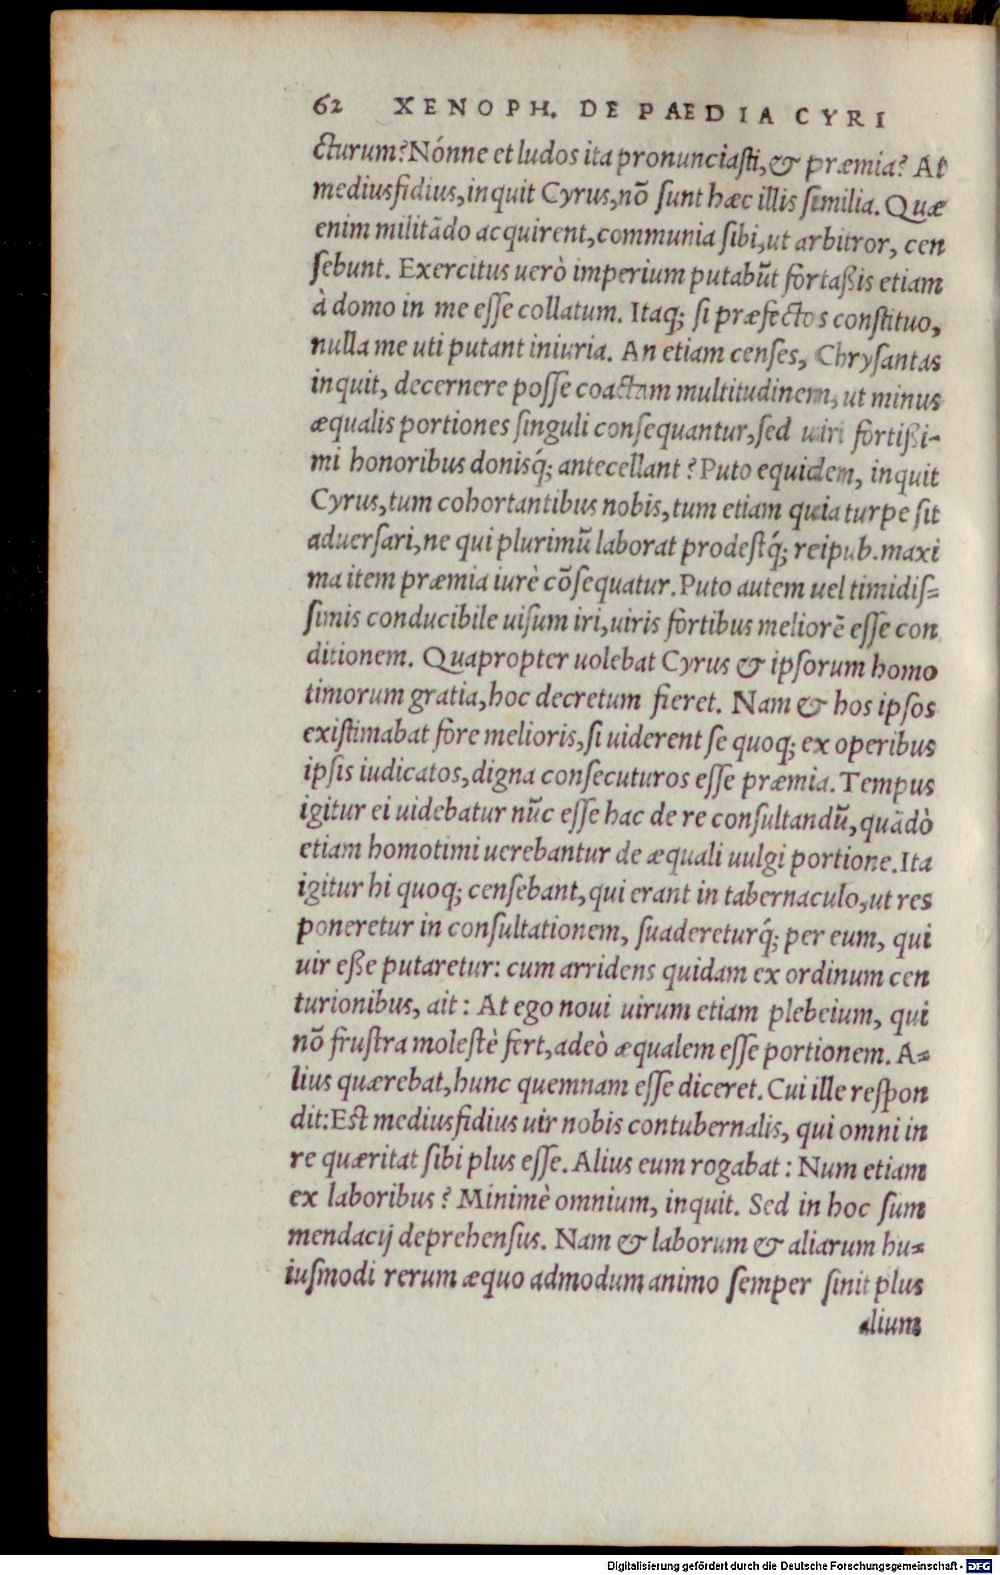 62 XENOPH. DE PAEDIA CYRI
cturum? Nónne et ludos ita pronunciasti, & præmia? At
mediusfidius, inquit Cyrus, nõ sunt hæc illis similia. Quæ
enim militãdo acquirent, communia sibi, ut arbitror, cen
sebunt. Exercitus uerò imperium putabũt fortaßis etiam
à domo in me esse collatum. Itaq; si præfectos constituo,
nulla me uti putant iniuria. An etiam censes, Chrysantas
inquit, decernere posse coactam multitudinem, ut minus
æqualis portiones singuli consequantur, sed uiri fortißi-
mi honoribus donisq́; antecellant? Puto equidem, inquit
Cyrus, tum cohortantibus nobis, tum etiam quia turpe sit
aduersari, ne qui plurimũ laborat prodestq́; reipub. maxi
ma item præmia iurè cõsequatur. Puto autem uel timidis-
simis conducibile uisum iri, uiris fortibus meliorẽ esse con
ditionem. Quapropter uolebat Cyrus & ipsorum homo
timorum gratia, hoc decretum fieret. Nam & hos ipsos
existimabat fore melioris, si uiderent se quoq; ex operibus
ipsis iudicatos, digna consecuturos esse præmia. Tempus
igitur ei uidebatur nũc esse hac de re consultandũ, quãdò
etiam homotimi uerebantur de æquali uulgi portione. Ita
igitur hi quoq; censebant, qui erant in tabernaculo, ut res
poneretur in consultationem, suadereturq́; per eum, qui
uir eße putaretur: cum arridens quidam ex ordinum cen
turionibus, ait: At ego noui uirum etiam plebeium, qui
nõ frustra molestè fert, adeò æqualem esse portionem. A-
lius quærebat, hunc quemnam esse diceret. Cui ille respon
dit: Est mediusfidius uir nobis contubernalis, qui omni in
re quæritat sibi plus esse. Alius eum rogabat: Num etiam
ex laboribus? Minimè omnium, inquit. Sed in hoc sum
mendacij deprehensus. Nam & laborum & aliarum hu-
iusmodi rerum æquo admodum animo semper sinit plus
alium
Digitalisierung gefördert durch die Deutsche Forschungsgemeinschaft - DFG